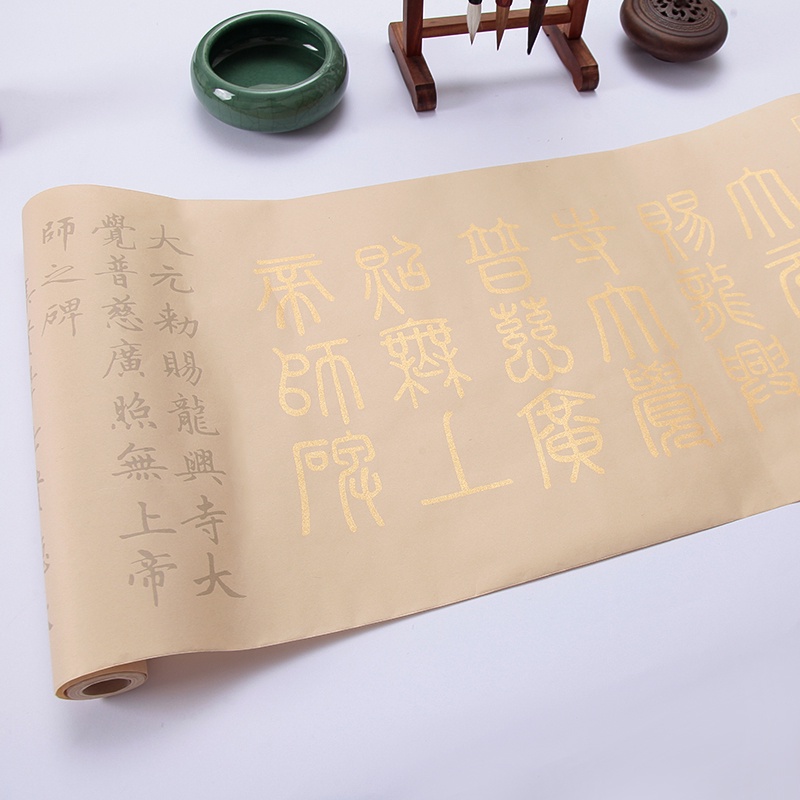 大元
賜龍興
寺大覺
普慈廣
照無上
帝師碑
大元勑賜龍興寺大
覺普慈廣照無上帝
師之碑